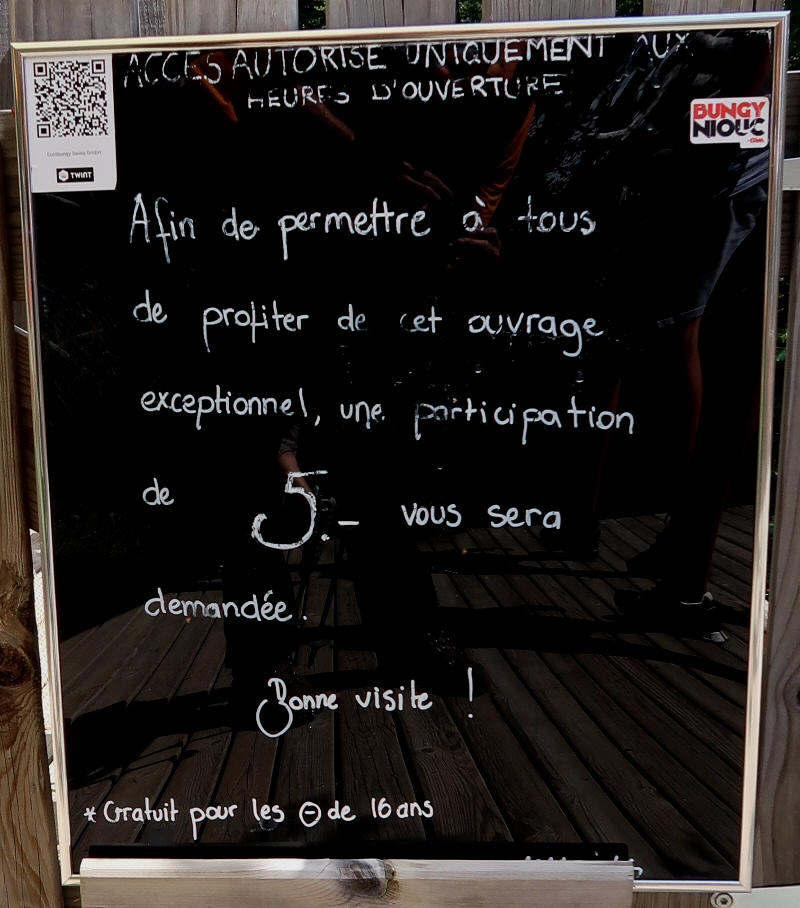 ACCES AUTORISE UNIQUEMENT AUX
HEURES D'OUVERTURE
Eurobungy Swiss GmbH
TWINT
BUNGY
NIOUC
.COM
Afin de permettre à tous
de profiter de cet ouvrage
exceptionnel, une participation
de 5.- vous sera
demandée.
Bonne visite !
* Gratuit pour les ⊖ de 16 ans